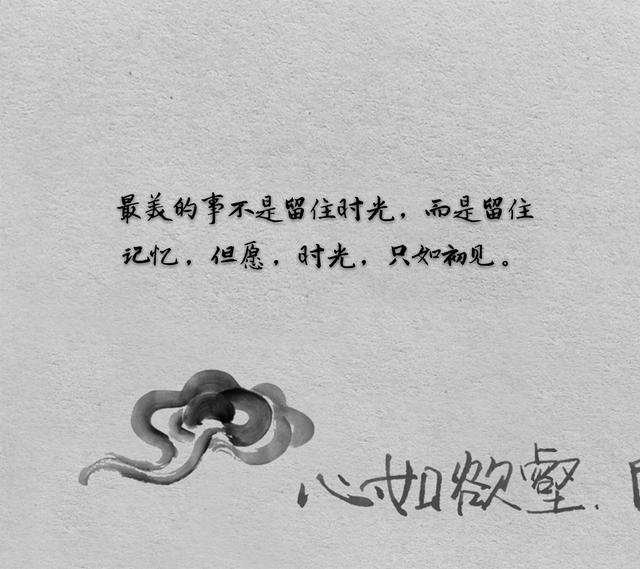 最美的事不是留住时光，而是留住
记忆，但愿，时光，只如初见。
心如欲壑.